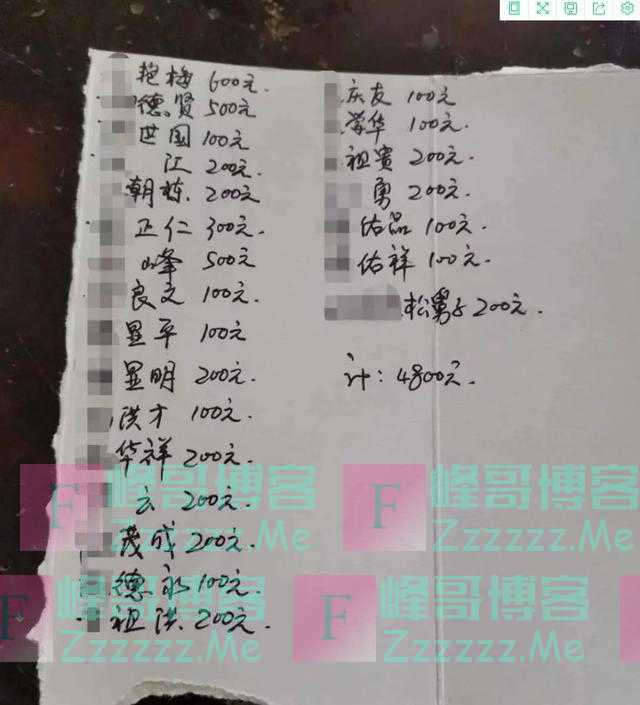 艳梅 600元.
德贤 500元
世国 100元
江 200元.
朝栋. 200元
正仁 300元.
峰 500元
良文 100元.
显平 100元
显明 200元.
洪才 100元.
华祥 200元.
云 200元.
茂成 200元.
德永 100元.
祖洪 200元.
庆友 100元
海华 100元.
祖贵 200元.
勇 200元.
佑品 100元.
佑祥 100元.
松舅 200元.
计: 4800元.
F 峰哥博客
Zzzzzz.Me
F 峰哥博客
Zzzzzz.Me
F 峰哥博客
Zzzzzz.Me
F 峰哥博客
Zzzzzz.Me